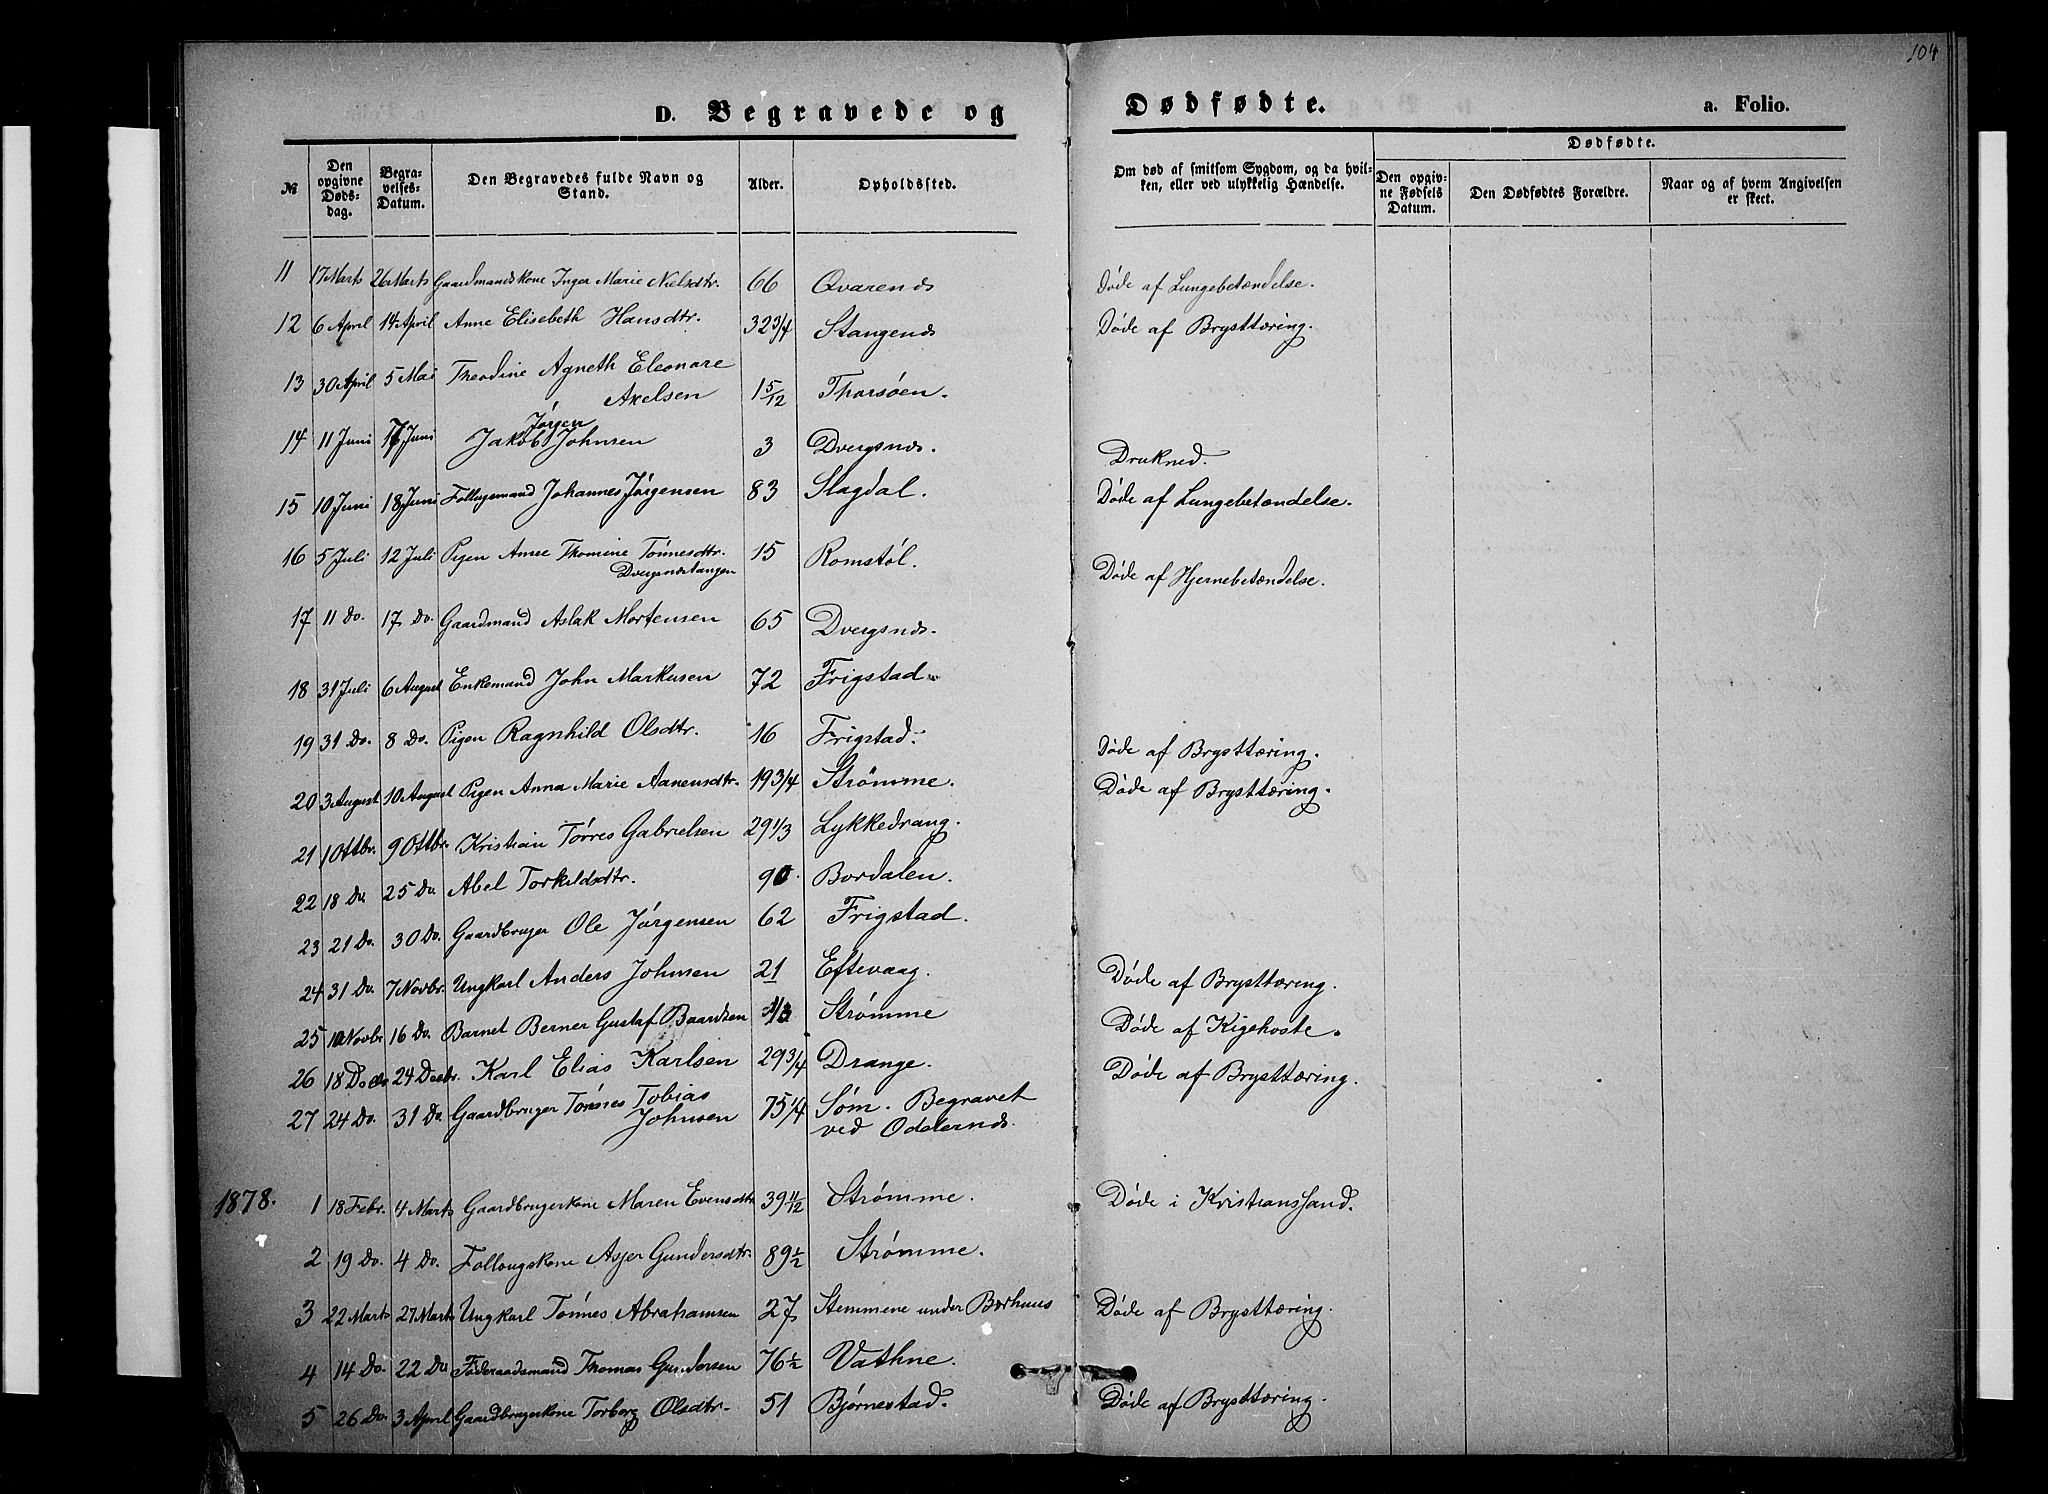 104
D. Begravede og Dødfødte. a. Folio.
№
Den opgivne Dødsdag.
Begravelses-Datum.
Den Begravedes fulde Navn og Stand.
Alder.
Opholdssted.
Om død af smitsom Sygdom, og da hvilken, eller ved ulykkelig Hændelse.
Dødfødte.
Den opgivne Fødsels Datum.
Den Dødfødtes Forældre.
Naar og af hvem Angivelsen er skeet.
11 17 Marts 26 Marts Gaardmandskone Inger Marie Nielsdtr. 66 Qvarenes Døde af Lungebetændelse.
12 6 April 14 April Anne Elisebeth Hansdtr. 32 3/4 Stangenes Døde af Brysttæring.
13 30 April 5 Mai Theodine Agneth Eleonore
Axelsen 1 5/12 Thorsøen.
Jørgen
14 11 Juni 17 Juni Jakob Johnsen 3 Dvergsnes. Drukned.
15 10 Juni 18 Juni Follugemand Johannes Jørgensen 83 Slagdal. Døde af Lungebetændelse.
16 5 Juli 12 Juli Pigen Anne Thomine Tønnesdtr. 15 Romstøl. Døde af Hjernebetændelse.
Dvergsnestangen
17 11 Do. 17 Do. Gaardmand Aslak Mortensen 65 Dvergsnes.
18 31 Juli 6 August Enkemand John Markusen 72 Frigstad.
19 31 Do. 8 Do. Pigen Ragnhild Olsdtr. 16 Frigstad. Døde af Brysttæring.
20 3 August 10 August Pigen Anna Marie Aanensdtr. 19 3/4 Strömme. Døde af Brysttæring.
21 1 Oktbr. 9 Oktbr. Kristian Tørres Gabrielsen 29 1/3 Lykkedrang.
22 18 Do 25 Do. Abel Torkildsdtr. 90 Bordalen.
23 21 Do. 30 Do. Gaardbruger Ole Jørgensen 62 Frigstad.
24 31 Do. 7 Novbr. Ungkarl Anders Johnsen 21 Eftevaag. Døde af Brysttæring.
25 10 Novbr 16 Do. Barnet Berner Gustaf Baardsen 1/3 Strømme Døde af Kigehoste.
26 18 Decbr 24 Decbr. Karl Elias Karlsen 29 3/4 Drange. Døde af Brysttæring.
27 24 Do. 31 Do. Gaardbruger Tønnes Tobias
Johnsen 75 1/4 Søm. Begravet
ved Oddernes.
1878. 1 18 Febr. 4 Marts Gaardbrugerkone Maren Evensdtr 39 11/12 Strømme. Døde i Kristianssand.
2 19 Do. 4 Do. Follougskone Asjer Gundersdtr. 89 1/2 Strømme.
3 22 Marts 27 Marts Ungkarl Tønnes Abrahamsen 27 Stemmene under Børhuus Døde af Brysttæring.
4 14 Do. 22 Do Føderaadsmand Thomas Gundersen 76 1/2 Vathne.
5 26 Do 3 April Gaardbrugerkone Torborg Olsdtr. 51 Bjørnestad. Døde af Brysttæring.